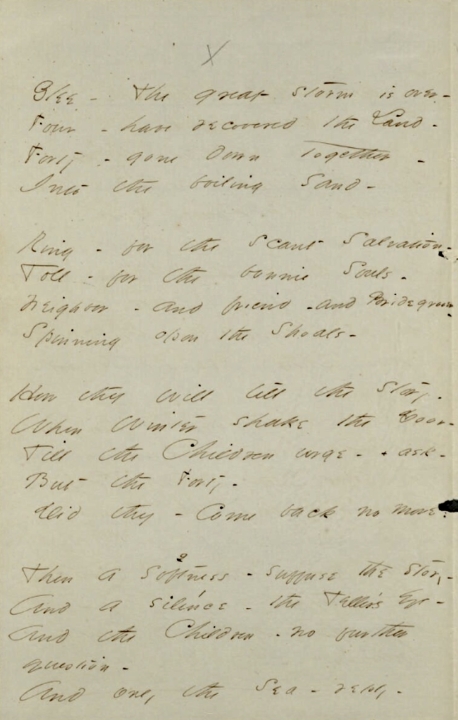 X
Glee - The great storm is over -
Four - have recovered the Land -
Forty - gone down together -
Into the boiling Sand -
Ring - for the scant Salvation -
Toll - for the bonnie Souls -
Neighbor - and friend - and Bridegroom -
Spinning upon the Shoals -
How they will tell the story -
When Winter shake the Door -
Till the Children urge - + ask -
But the Forty -
Did they - Come back no more?
Then a softness - suffuse the story -
And a silence - the Teller's Eye -
And the Children - no further
question -
And only the Sea - reply -